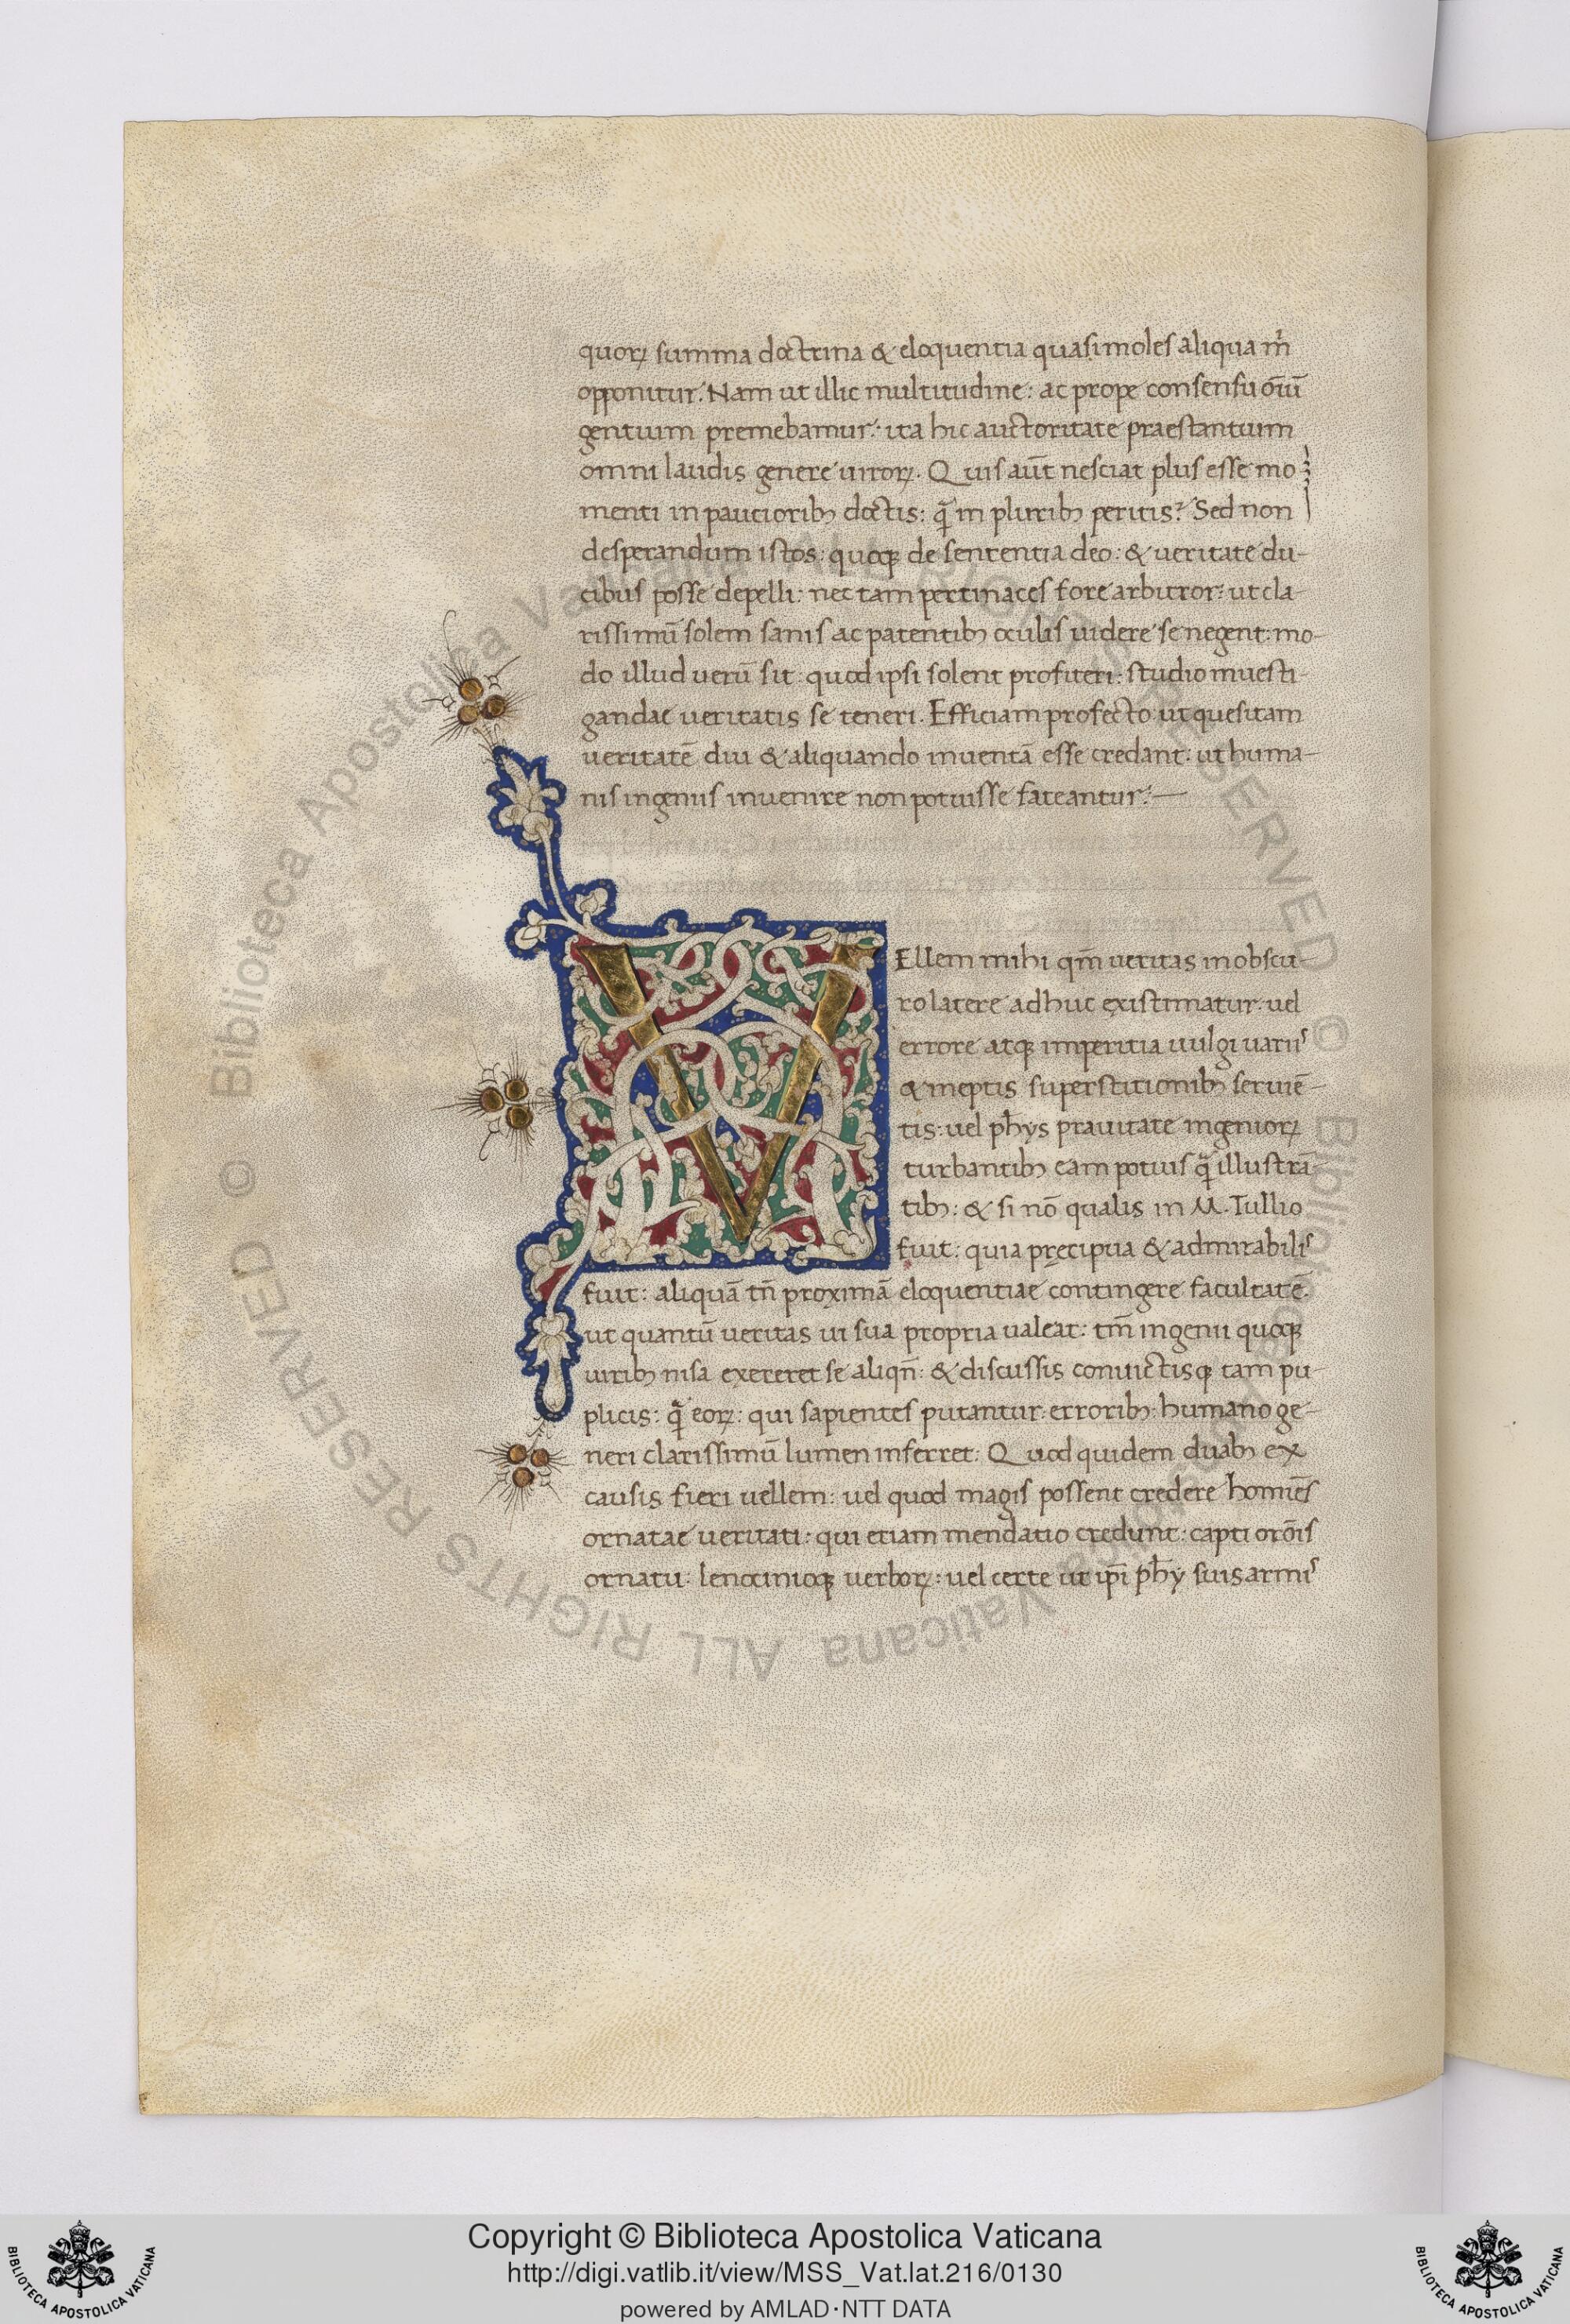 quoꝝ summa doctrina & eloquentia quasi moles aliqua nr̄
opponitur. Nam ut illic multitudine: ac prope consensu oīū
gentium premebamur: ita hic auctoritate praestantium
omni laudis genere uiroꝝ. Quis aūt nesciat plus esse mo
menti in paucioribꝫ doctis: q̄ in pluribꝫ peritis? Sed non
desperandum istos: quoqꝫ de sententia deo: & ueritate du-
cibus posse depelli: nec tam pertinaces fore arbitror: ut cla-
rissimū solem sanis ac patentibꝫ oculis uidere se negent: mo-
do illud uerū sit: quod ipsi solent profiteri: studio inuesti-
gandae ueritatis se teneri. Efficiam profecto ut quesitam
ueritatē diu & aliquando inuentā esse credant: ut huma-
nis ingeniis inuenire non potuisse fateantur:—
VEllem mihi qm̄ ueritas in obscu-
ro latere adhuc existimatur: uel
errore atqꝫ imperitia uulgi uariis
& ineptis superstitionibꝫ seruiē-
tis: uel ph̄ys prauitate ingenioꝝ
turbantibꝫ eam potius q̄ illustrā
tibꝫ: & si nō qualis in M. Tullio
fuit: quia pręcipua & admirabilis
fuit: aliquā tn̄ proximā eloquentiae contingere facultatē.
ut quantū ueritas ui sua propria ualeat: tm̄ ingenii quoqꝫ
uiribꝫ nisa exereret se aliqn̄: & discussis conuictisqꝫ tam pu-
plicis: q̄ eoꝝ: qui sapientes putantur: erroribꝫ: humano ge-
neri clarissimū lumen inferret: Quod quidem duabꝫ ex
causis fieri uellem: uel quod magis possent credere homiēs
ornatae ueritati: qui etiam mendatio credunt: capti orōis
ornatu: lenocinioqꝫ uerboꝝ: uel certe ut ip̄i ph̄y suis armis
Copyright © Biblioteca Apostolica Vaticana
http://digi.vatlib.it/view/MSS_Vat.lat.216/0130
powered by AMLAD·NTT DATA
BIBLIOTECA APOSTOLICA VATICANA
BIBLIOTECA APOSTOLICA VATICANA
© Biblioteca Apostolica Vaticana ALL RIGHTS RESERVED © Biblioteca Apostolica Vaticana ALL RIGHTS RESERVED